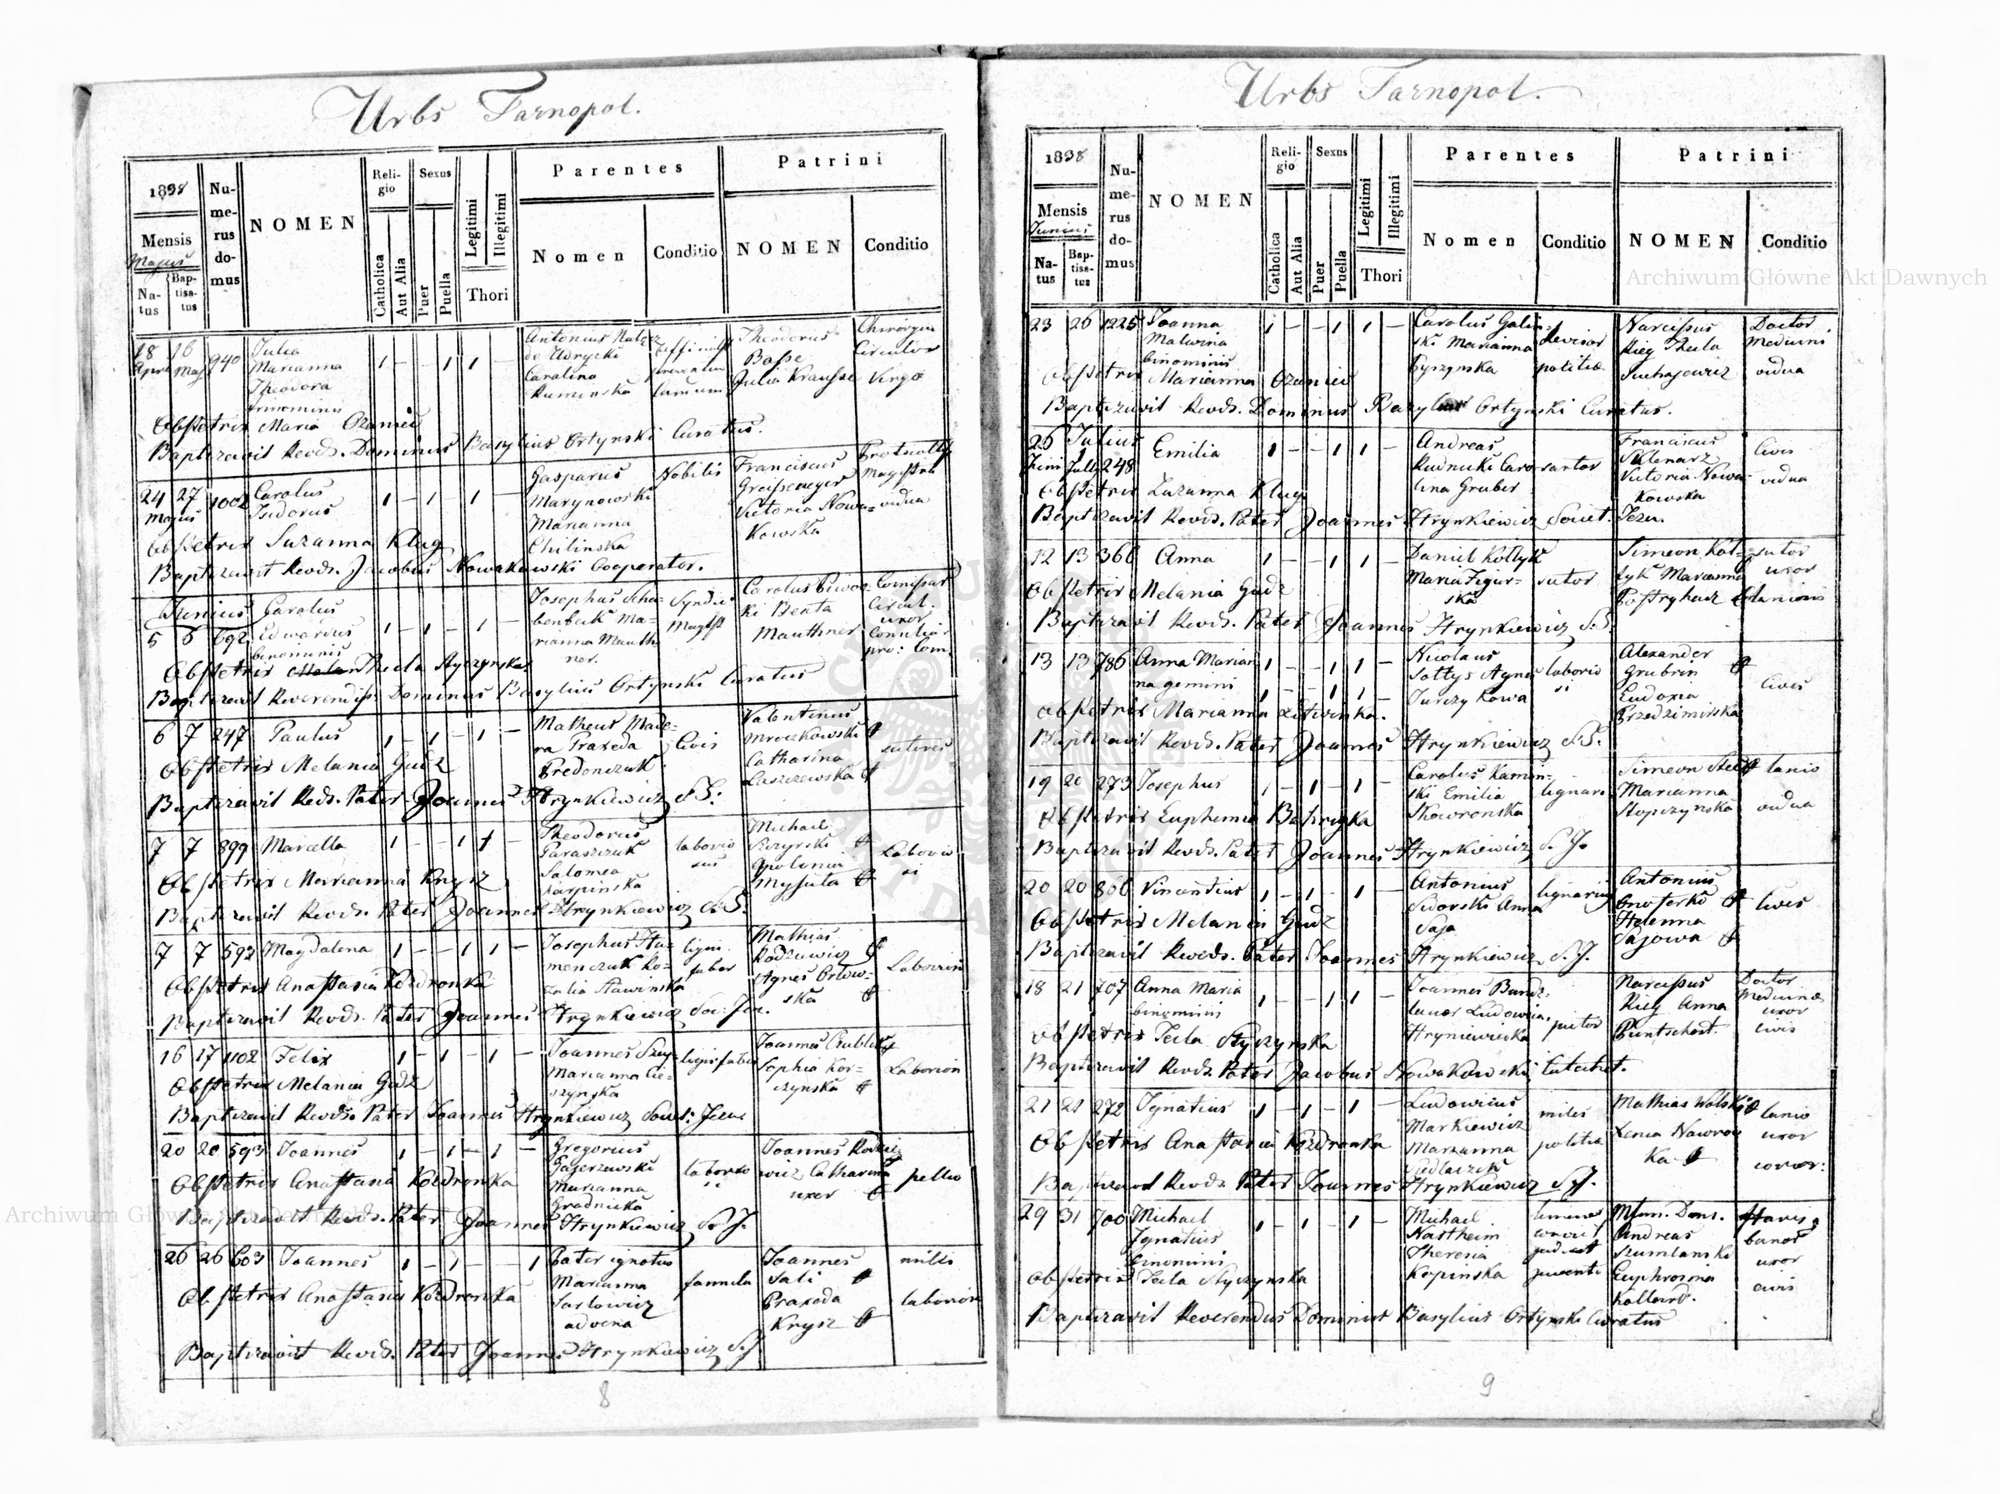 Urbs Tarnopol.
1838
Mensis
Majus
Na-
tus
Bap-
tisa-
tus
Nu-
me-
rus
do-
mus
NOMEN
Reli-
gio
Catholica
Aut Alia
Sexus
Puer
Puella
Legitimi
Illegitimi
Thori
Parentes
Nomen
Conditio
Patrini
NOMEN
Conditio
18 16 940 Julia
Marianna
Theodora
trinominis
Antonius
Carolina
Kuminska
Theodorus
Basse
Julia Krausse
Chirurgus
Circular
Virgo
Obstetrix Maria Ozaniec
Baptizavit Revds. Dominus Basylius Ortynski Curatus.
24 27 1002 Carolus
Majus Isidorus
Gasparus
Marynowski
Marianna
Chilinska
Nobilis
Franciscus
Victoria Nowa=
kowska
vidua
Obstetrix Suzanna Klug
Baptizavit Revds. Jacobus Nowakowski Cooperator.
Junius
5 6 692 Carolus
Edwardus
binominis
Josephus Schu-
benbeck Ma-
rianna Mauth
ner.
Syndic
Magist
Carolus Piwoc
ki Berta
Mauthner
uxor
Obstetrix Thecla Styczynska
Baptizavit Reverendiss. Dominus Basylius Ortynski Curatus
6 7 247 Paulus
Matheus Made-
ra Praxeda
Predenczuk
Civis
Valentinus
Mroczkowski
Catharina
Laszczewska
sutores
Obstetrix Melania Gudz
Baptizavit Reds. Pater Joannes Hrynkiewicz S. J.
7 7 899 Marcella
Theodorus
Paraszczuk
Salomea
Karpinska
laborio
sus
Michael
Apolonia
Mysula
Laborio
si
Obstetrix Marianna Krysz
Baptizavit Revds. Pater Joannes Hrynkiewicz S. J.
7 7 592 Magdalena
Josephus Stu-
menczuk Ro-
zalia Stawinska
ligni
faber
Mathias
Kodziewicz
Agnes Orlow-
ska
Laboriosi
Obstetrix Anastasia Kozdronka
Baptizavit Revds. Pater Joannes Hrynkiewicz Soc. Jes.
16 17 1102 Felix
Joannes
Marianna Cie-
szynska
lignifaber
Joannes
Sophia Kor-
czynska
Laboriosi
Obstetrix Melania Gudz
Baptizavit Revds. Pater Joannes Hrynkiewicz Societ: Jesu
20 20 593 Joannes
Gregorius
Gajerzewski
Marianna
Grodnicka
laborio
si
Joannes Kodzie
wicz Catharina
uxor
pellio
Obstetrix Anastasia Kozdronka
Baptizavit Revds. Pater Joannes Hrynkiewicz S. J.
26 26 603 Joannes
Pater ignotus
Marianna
Sarlowicz
advena
famula
Joannes
Sali
Praxeda
Krysz
miles
laboriosi
Obstetrix Anastasia Kozdronka
Baptizavit Revds. Pater Joannes Hrynkiewicz S. J.
8
Urbs Tarnopol.
1838
Mensis
Junius
Na-
tus
Bap-
tisa-
tus
Nu-
me-
rus
do-
mus
NOMEN
Reli-
gio
Catholica
Aut Alia
Sexus
Puer
Puella
Legitimi
Illegitimi
Thori
Parentes
Nomen
Conditio
Patrini
NOMEN
Conditio
23 26 1225 Joanna
Malwina
binominis
Carolus Galin-
ski Marianna
Pyszynska
Revisor
politiae
Narcissus
Rieg Thecla
Suchajewicz
Doctor
Medicini
vidua
Obstetrix Marianna Ozaniec
Baptizavit Revds. Dominus Basylius Ortynski Curatus.
26 Julius 248 Emilia
Andreas
Rudnicki Caro
lina Gruber
sartor
Franciscus
Sklenarz
Victoria Nowa-
kowska
Civis
vidua
Obstetrix Zuzanna Klug
Baptizavit Revds. Pater Joannes Hrynkiewicz Societ. Jesu.
12 13 366 Anna
Daniel Kotlyk
Maria Figur-
ska
sutor
Simeon Kot-
lyk Marianna
Postryhacz
sutor
uxor
lanionis
Obstetrix Melania Gudz
Baptizavit Revds. Pater Joannes Hrynkiewicz S. J.
13 13 786 Anna Marian
na gemini
Nicolaus
Soltys Agnes
Jurczykowa
laborio
si
Alexander
Grubrin
Eudoxia
Przedzimirska
Cives
Obstetrix Marianna Litwinka.
Baptizavit Revds. Pater Joannes Hrynkiewicz S. J.
19 20 273 Josephus
Carolus Kamin-
ski Emilia
Skowronska
lignari
Simeon
Marianna
Stopczynska
lanio
vidua
Obstetrix Euphemia
Baptizavit Revds. Pater Joannes Hrynkiewicz S. J.
20 20 806 Vincentius
Antonius
Sidorski Anna
Saja
lignarius
Antonius
Onoforko
Helenna
Sajowa
Cives
Obstetrix Melania Gudz
Baptizavit Revds. Pater Joannes Hrynkiewicz S. J.
18 21 707 Anna Maria
binomini
Joannes
Ludovica
Hryniewiecka
pictor
Narcissus
Rieg Anna
Puntschert
Doctor
Medicinae
uxor
civis
Obstetrix Tecla Styczynska
Baptizavit Revds. Pater Jacobus Nowakowski Catechet.
21 21 272 Ignatius
Ludovicus
Markiewicz
Marianna
Siedlaczek
miles
politia
Mathias Wolski
Xenia Nawroc
ka
lanio
uxor
Obstetrix Anastasia Kozdronka
Baptizavit Revds. Pater Joannes Hrynkiewicz S. J.
29 31 700 Michael
Ignatius
binomini
Michael
Nastheim
Theresia
Kopinska
Andreas
Szumlanski
Euphrosina
uxor
civis
Obstetrix Tecla Styczynska
Baptizavit Reverendus Dominus Basylius Ortynski Curatus
9
Archiwum Główne Akt Dawnych
Archiwum Główne Akt Dawnych